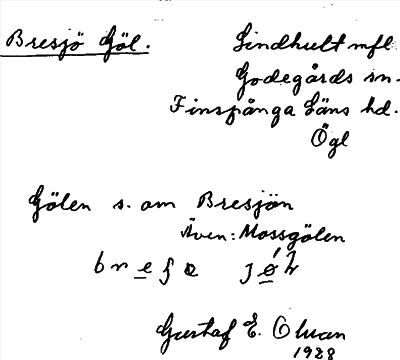 Bresjö Göl.
Lindhult mfl
Godegårds sn.
Finspånga Läns hd.
Ögl
Gölen s. om Bresjön
Även: Mossgölen
Gustaf E. Olson
1928